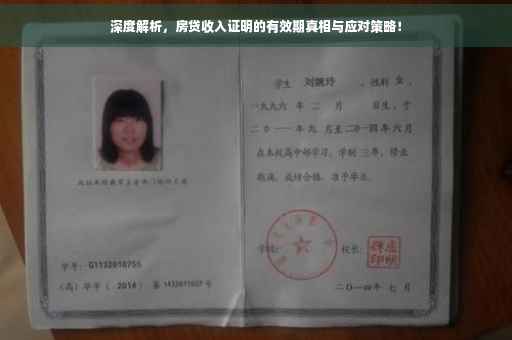 深度解析，房贷收入证明的有效期真相与应对策略！
学生 刘婉玲 ，性别 女 ，
一九九六 年 二 月 日生，于
二〇一一 年 九 月至 二〇一四 年 六 月
在本校高中部学习，学制 三 年，修业
期满，成绩合格，准予毕业。
学校： 校长：
学号： G1132010755
（高）毕字（ 2014 ）第 1432011027 号
二〇一四年 七 月